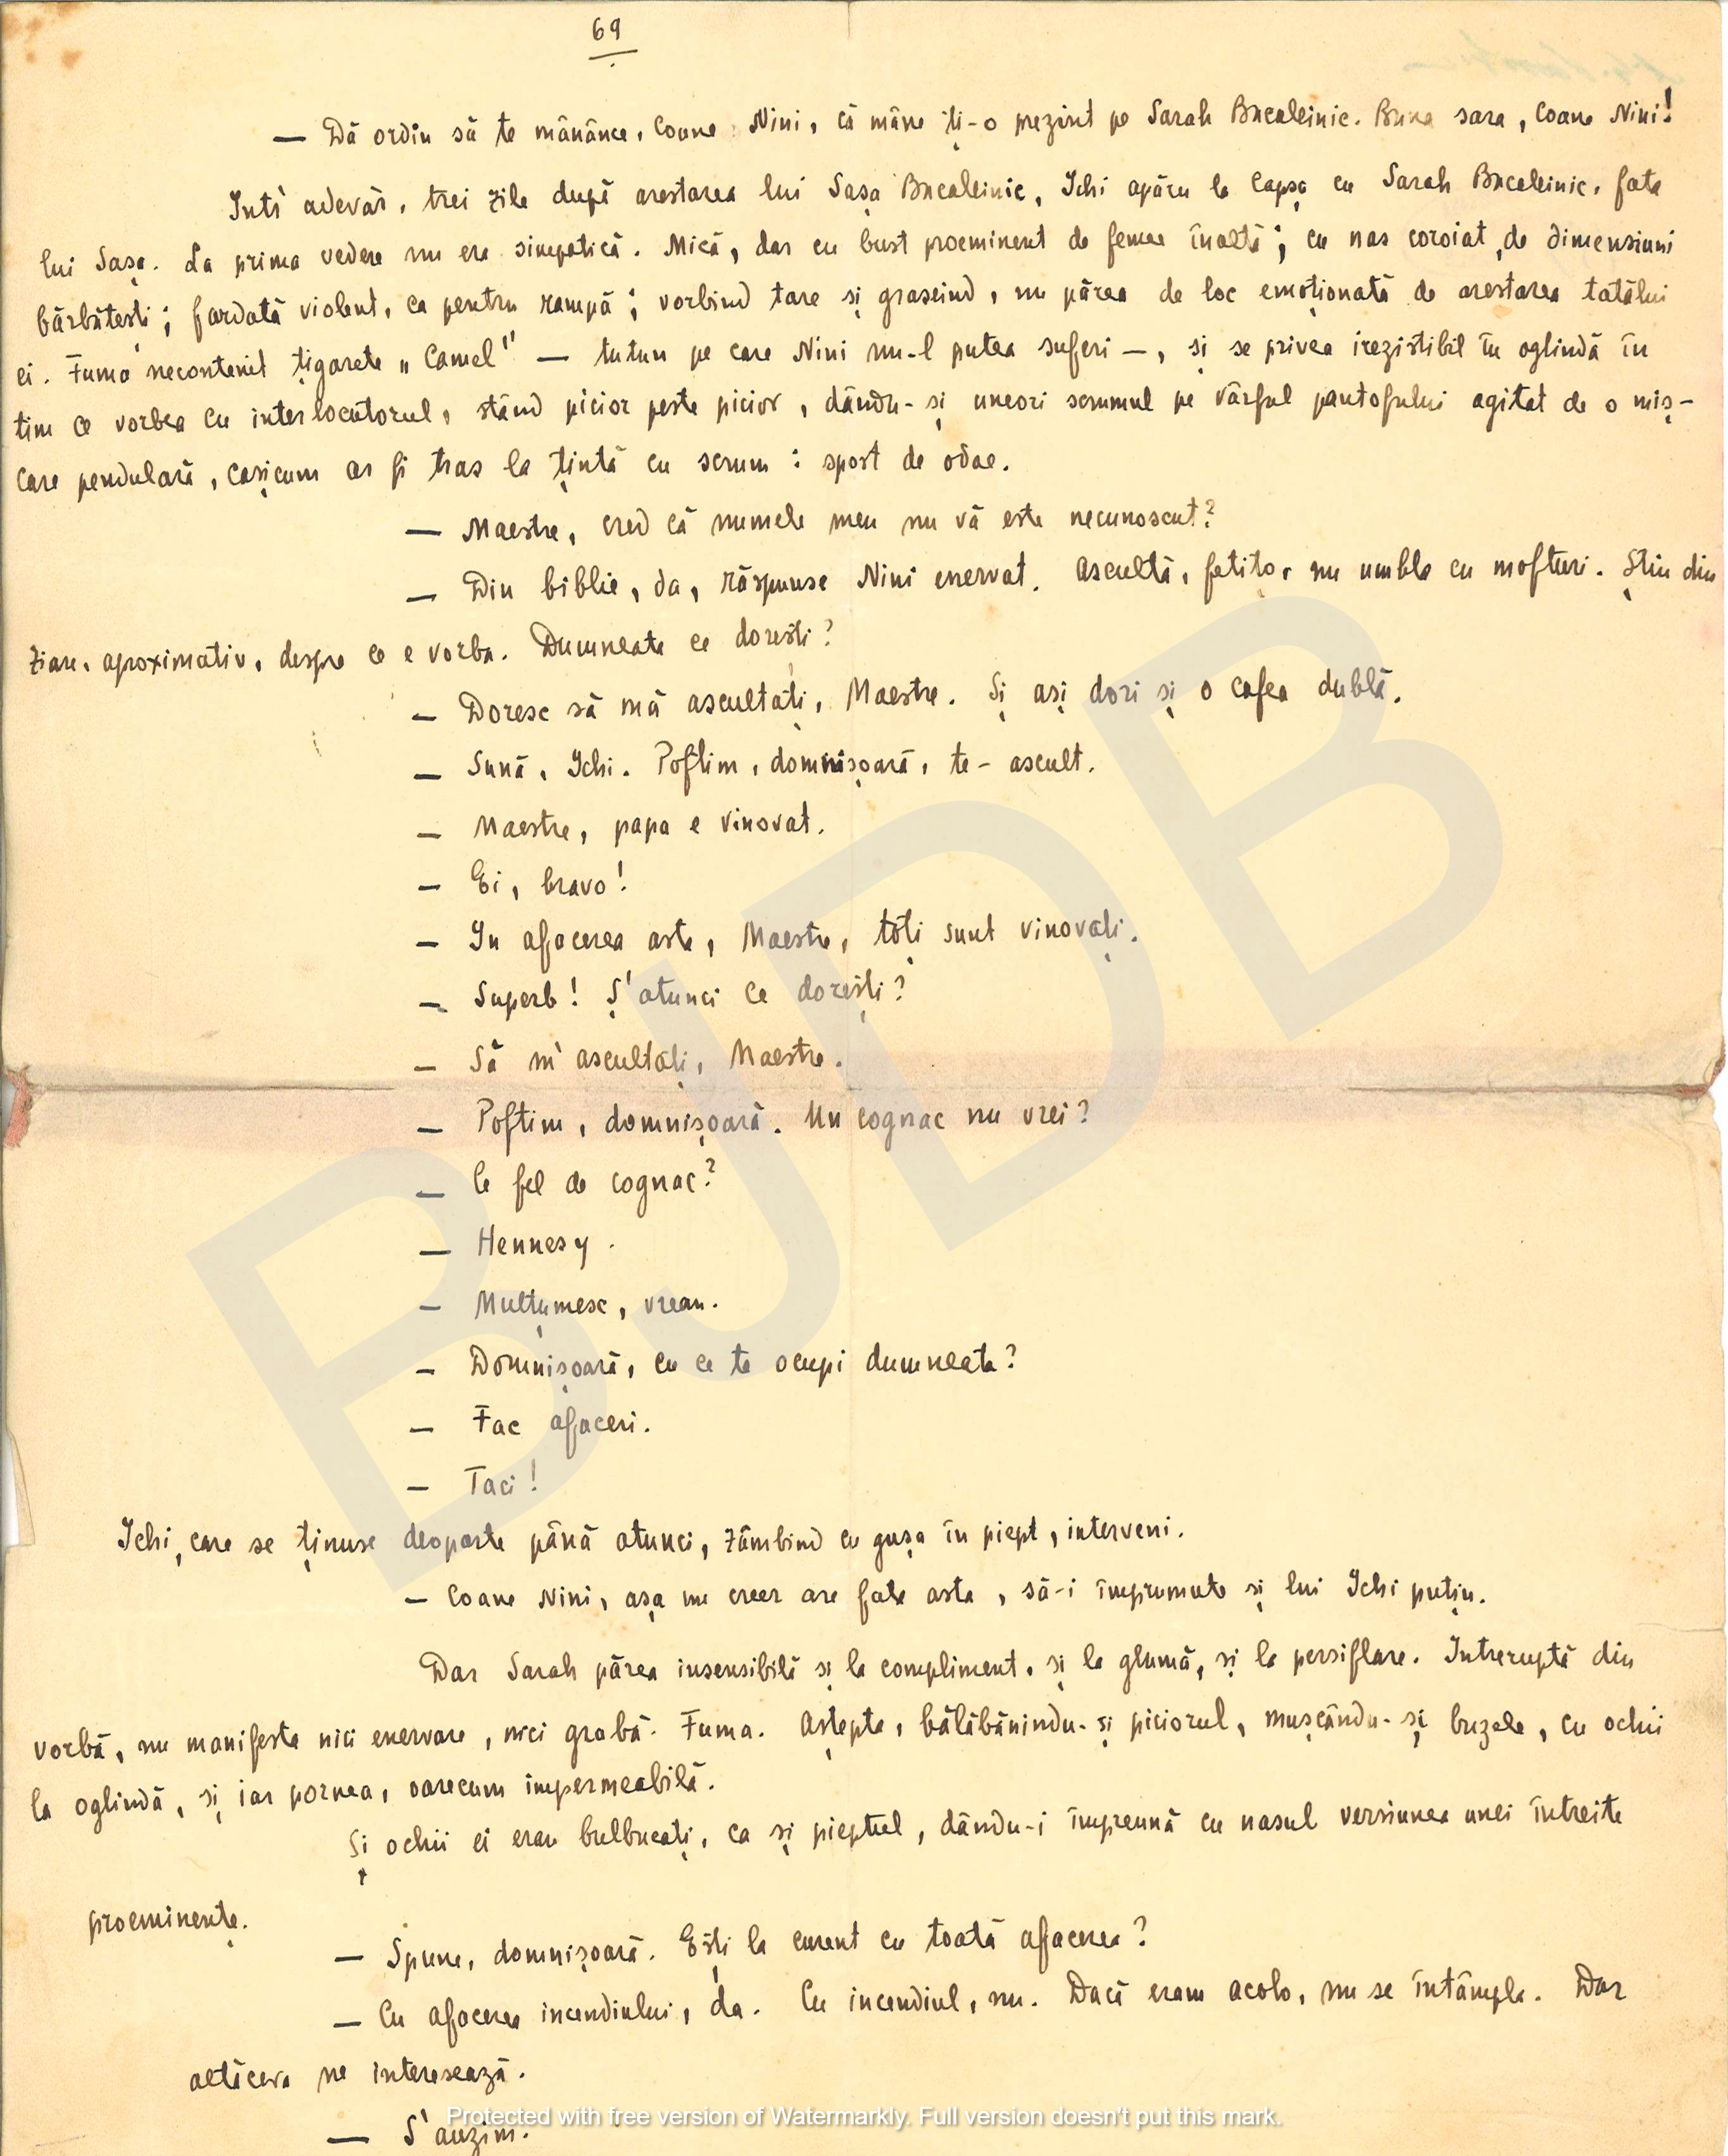 69
— Dă ordin să te mănânce, Coane Nini, că mâne ți-o prezint pe Sarah Bucaleinic. Buna sara, Coane Nini!
Intr' adevăr, trei zile după arestarea lui Sașa Bucaleinic, Ichi apăru la Capșa cu Sarah Bucaleinic, fata
lui Sașa. La prima vedere nu era simpatică. Mică, dar cu bust proeminent de femee înaltă; cu nas coroiat, de dimensiuni
bărbătești; fardată violent, ca pentru rampă; vorbind tare și graseind, nu părea de loc emoționată de arestarea tatălui
ei. Fuma necontenit țigarete „Camel" — tutun pe care Nini nu-l putea suferi —, și se privea irezistibil în oglindă în
timp ce vorbea cu interlocutorul, stând picior peste picior, dându-și uneori scrumul pe vârful pantofului agitat de o miș-
care pendulară, cașicum ar fi tras la țintă cu scrum: sport de odae.
— Maestre, cred că numele meu nu vă este necunoscut?
— Din biblie, da, răspunse Nini enervat. Ascultă, fetițo, nu umbla cu mofturi. Știu din
ziare, aproximativ, despre ce e vorba. Dumneata ce dorești?
— Doresc să mă ascultați, Maestre. Și ași dori și o cafea dublă.
— Sună, Ichi. Poftim, domnișoară, te-ascult.
— Maestre, papa e vinovat.
— Ei, bravo!
— In afacerea asta, Maestre, toți sunt vinovați.
— Superb! Ș'atunci ce dorești?
— Să m'ascultați, Maestre.
— Poftim, domnișoară. Un cognac nu vrei?
— Ce fel de cognac?
— Hennesy.
— Mulțumesc, vreau.
— Domnișoară, cu ce te ocupi dumneata?
— Fac afaceri.
— Taci!
Ichi, care se ținuse deoparte până atunci, zâmbind cu gușa în piept, interveni.
— Coane Nini, așa un creer are fata asta, să-i împrumute și lui Ichi puțin.
Dar Sarah părea insensibilă și la compliment, și la glumă, și la persiflare. Intreruptă din
vorbă, nu manifesta nici enervare, nici grabă. Fuma. Aștepta, bălăbănindu-și piciorul, mușcându-și buzele, cu ochii
la oglindă, și iar pornea, oarecum impermeabilă.
Și ochii ei erau bulbucați, ca și pieptul, dându-i împreună cu nasul versiunea unei întreite
proeminențe.
— Spune, domnișoară. Ești la curent cu toată afacerea?
— Cu afacerea incendiului, da. Cu incendiul, nu. Dacă eram acolo, nu se întâmpla. Dar
altceva ne interesează.
— S'auzim.
BJDB
Protected with free version of Watermarkly. Full version doesn't put this mark.